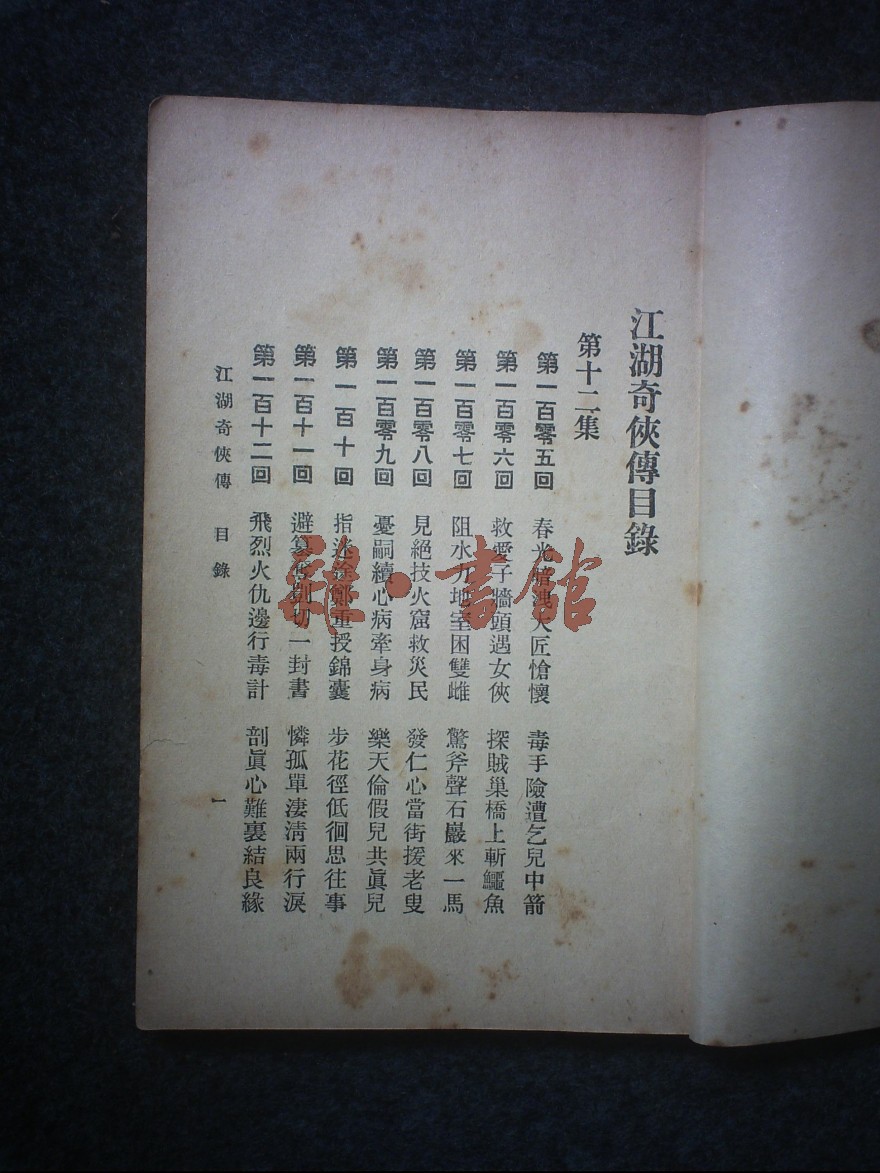 江湖奇俠傳目錄
第十二集
第一百零五回 春光暗洩大匠愴懷 毒手險遭乞兒中箭
第一百零六回 救愛子牆頭遇女俠 探賊巢橋上斬鱷魚
第一百零七回 阻水力地室困雙雌 驚斧聲石巖來一馬
第一百零八回 見絕技火窟救災民 發仁心當街援老叟
第一百零九回 憂嗣續心病牽身病 樂天倫假兒共眞兒
第一百十回 指迷途鄭重授錦囊 步花徑低徊思往事
第一百十一回 避篡奪剴切一封書 憐孤單淒清兩行淚
第一百十二回 飛烈火仇邊行毒計 剖眞心難裏結良緣
江湖奇俠傳 目錄
一
雜·書館